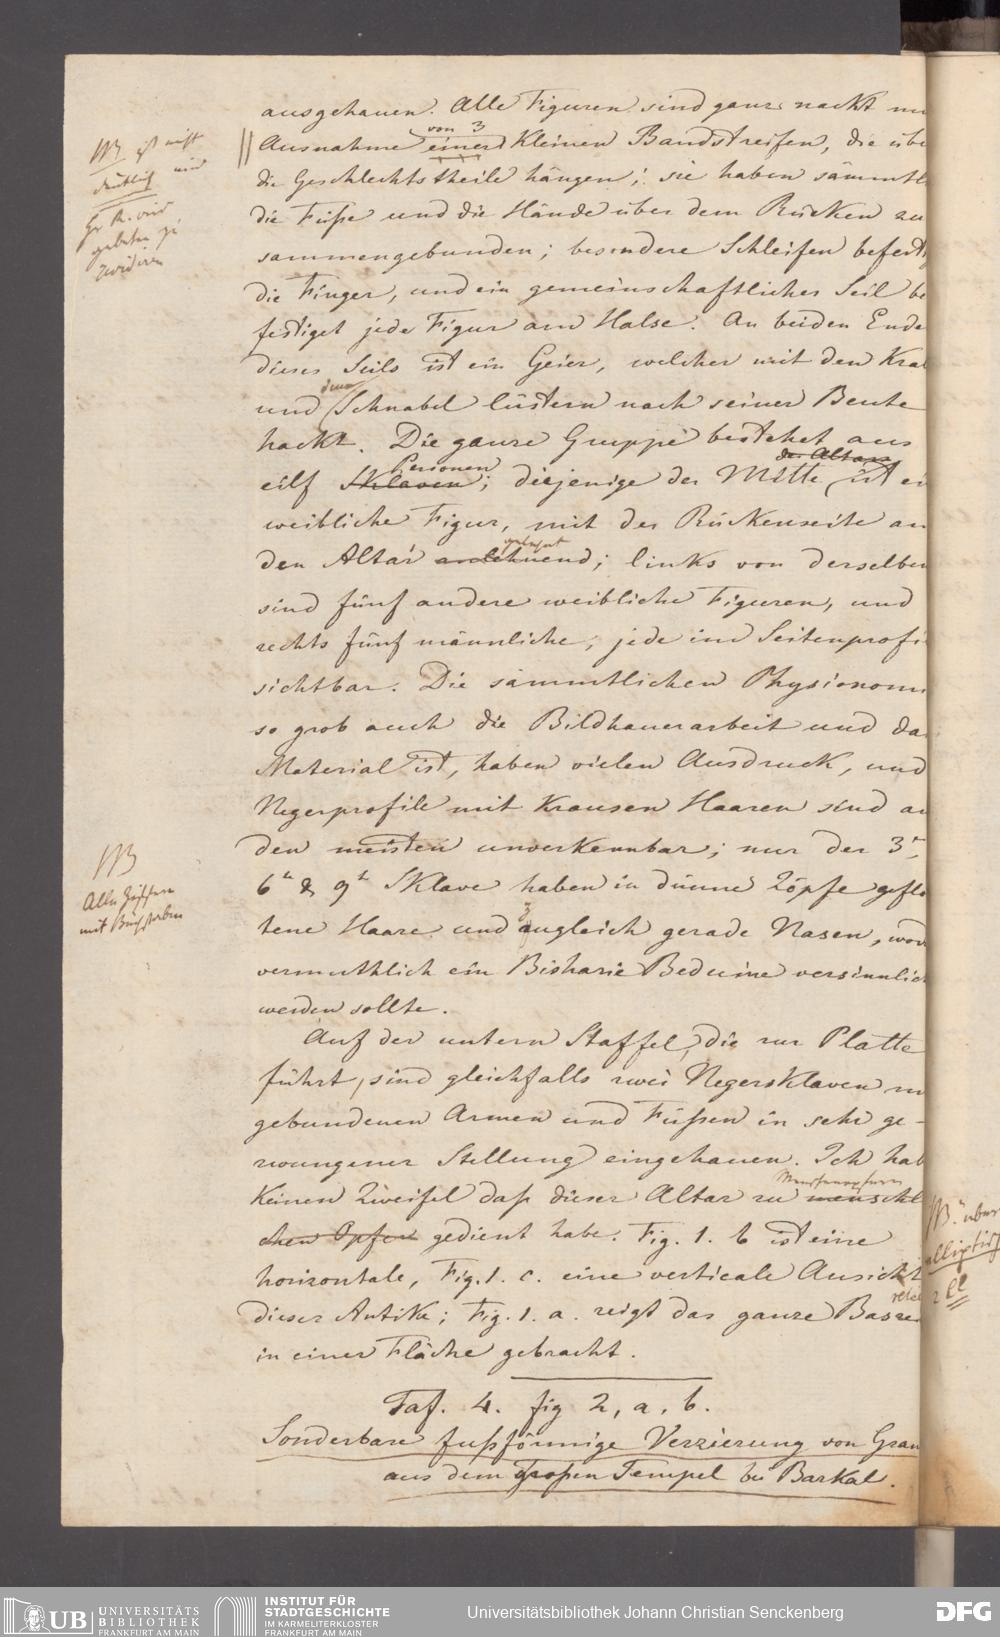 ausgehauen. Alle Figuren sind ganz nackt
Ausnahme einer von 3 kleinen Bandstreifen, die übe
die Geschlechtstheile hängen; sie haben sämmtl
die Füße und die Hände über dem Rücken zu
sammengebunden; besondere Schleifen befesti
die Finger, und ein gemeinschaftliches Seil be
festiget jede Figur am Halse. An beiden Ende
dieses Seils ist ein Geier, welcher mit den Kral
und dem Schnabel lüstern nach seiner Beute
hackt. Die ganze Gruppe bestehet aus
des Altars
eilf Sklaven Personen; diejenige der Mitte ist ei
weibliche Figur, mit der Rückenseite an
den Altar anlehnend gelehnt; links von derselben
sind fünf andere weibliche Figuren, und
rechts fünf männliche; jede im Seitenprofi
sichtbar. Die sämmtlichen Physionomi
so grob auch die Bildhauerarbeit und da
Material ist, haben vielen Ausdruck, und
Negerprofile mit krausen Haaren sind an
den meisten unverkennbar; nur der 3r,
6r & 9r Sklave haben in dünne Zöpfe geflo
tene Haare und zugleich gerade Nasen, wod
vermuthlich ein Bisharie Beduine versinnlich
werden sollte.
Auf der untern Staffel, die zur Platte
führt, sind gleichfalls zwei Negersklaven m
gebundenen Armen und Füßen in sehr ge-
zwungener Stellung eingehauen. Ich hab
keinen Zweifel daß dieser Altar zu Menschenopfern menschl
chen Opfern gedient habe. Fig. 1. b ist eine
horizontale, Fig. 1. c. eine verticale Ansicht
dieser Antika; Fig. 1. a. zeigt das ganze Basre
relie
in einer Fläche gebracht.
Taf. 4. fig 2, a. b.
Sonderbare fußförmige Verzierung von Gran
aus dem großen Tempel bei Barkal.
NB ist nicht
deutlich
gebeten zu
revidiren
NB
Alle Ziffern
mit Buchstaben
NB. über
elliptisch
2 ll
UB UNIVERSITÄTS
BIBLIOTHEK
FRANKFURT AM MAIN
INSTITUT FÜR
STADTGESCHICHTE
IM KARMELITERKLOSTER
FRANKFURT AM MAIN
Universitätsbibliothek Johann Christian Senckenberg
DFG